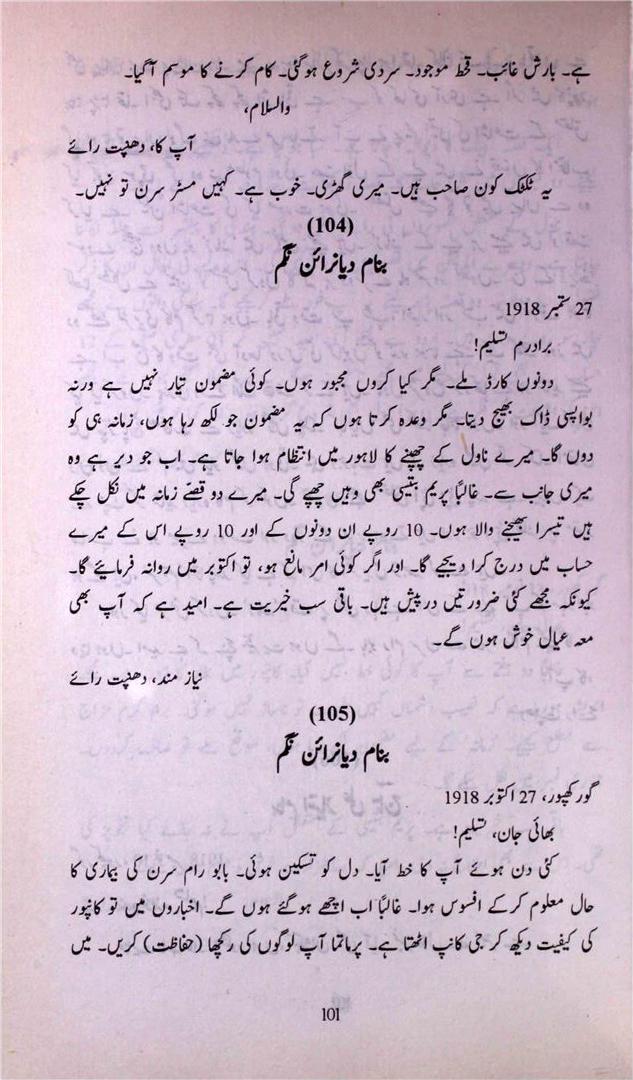 ہے۔ بارش غائب۔ قحط موجود۔ سردی شروع ہوگئی۔ کام کرنے کا موسم آگیا۔
والسلام،
آپ کا، دھنپت رائے
یہ ٹلٹک کون صاحب ہیں۔ میری گھڑی۔ خوب ہے۔ کہیں مسٹر سرن تو نہیں۔
(104)
بنام دیانرائن نگم
27 ستمبر 1918
برادرم تسلیم!
دونوں کارڈ ملے۔ مگر کیا کروں مجبور ہوں۔ کوئی مضمون تیار نہیں ہے ورنہ
بواپسی ڈاک بھیج دیتا۔ مگر وعدہ کرتا ہوں کہ یہ مضمون جو لکھ رہا ہوں، زمانہ ہی کو
دوں گا۔ میرے ناول کے چھپنے کا لاہور میں انتظام ہوا جاتا ہے۔ اب جو دیر ہے وہ
میری جانب سے۔ غالباً پریم بتیسی بھی وہیں چھپے گی۔ میرے دو قصّے زمانہ میں نکل چکے
ہیں تیسرا بھیجنے والا ہوں۔ 10 روپے ان دونوں کے اور 10 روپے اس کے میرے
حساب میں درج کرا دیجیے گا۔ اور اگر کوئی امر مانع ہو، تو اکتوبر میں روانہ فرمایئے گا۔
کیونکہ مجھے کئی ضرورتیں درپیش ہیں۔ باقی سب خیریت ہے۔ امید ہے کہ آپ بھی
معہ عیال خوش ہوں گے۔
نیاز مند، دھنپت رائے
(105)
بنام دیانرائن نگم
گورکھپور، 27 اکتوبر 1918
بھائی جان، تسلیم!
کئی دن ہوئے آپ کا خط آیا۔ دل کو تسکین ہوئی۔ بابو رام سرن کی بیماری کا
حال معلوم کرکے افسوس ہوا۔ غالباً اب اچھے ہوگئے ہوں گے۔ اخباروں میں تو کانپور
کی کیفیت دیکھ کر جی کانپ اٹھتا ہے۔ پرماتما آپ لوگوں کی رکچھا (حفاظت) کریں۔ میں
101